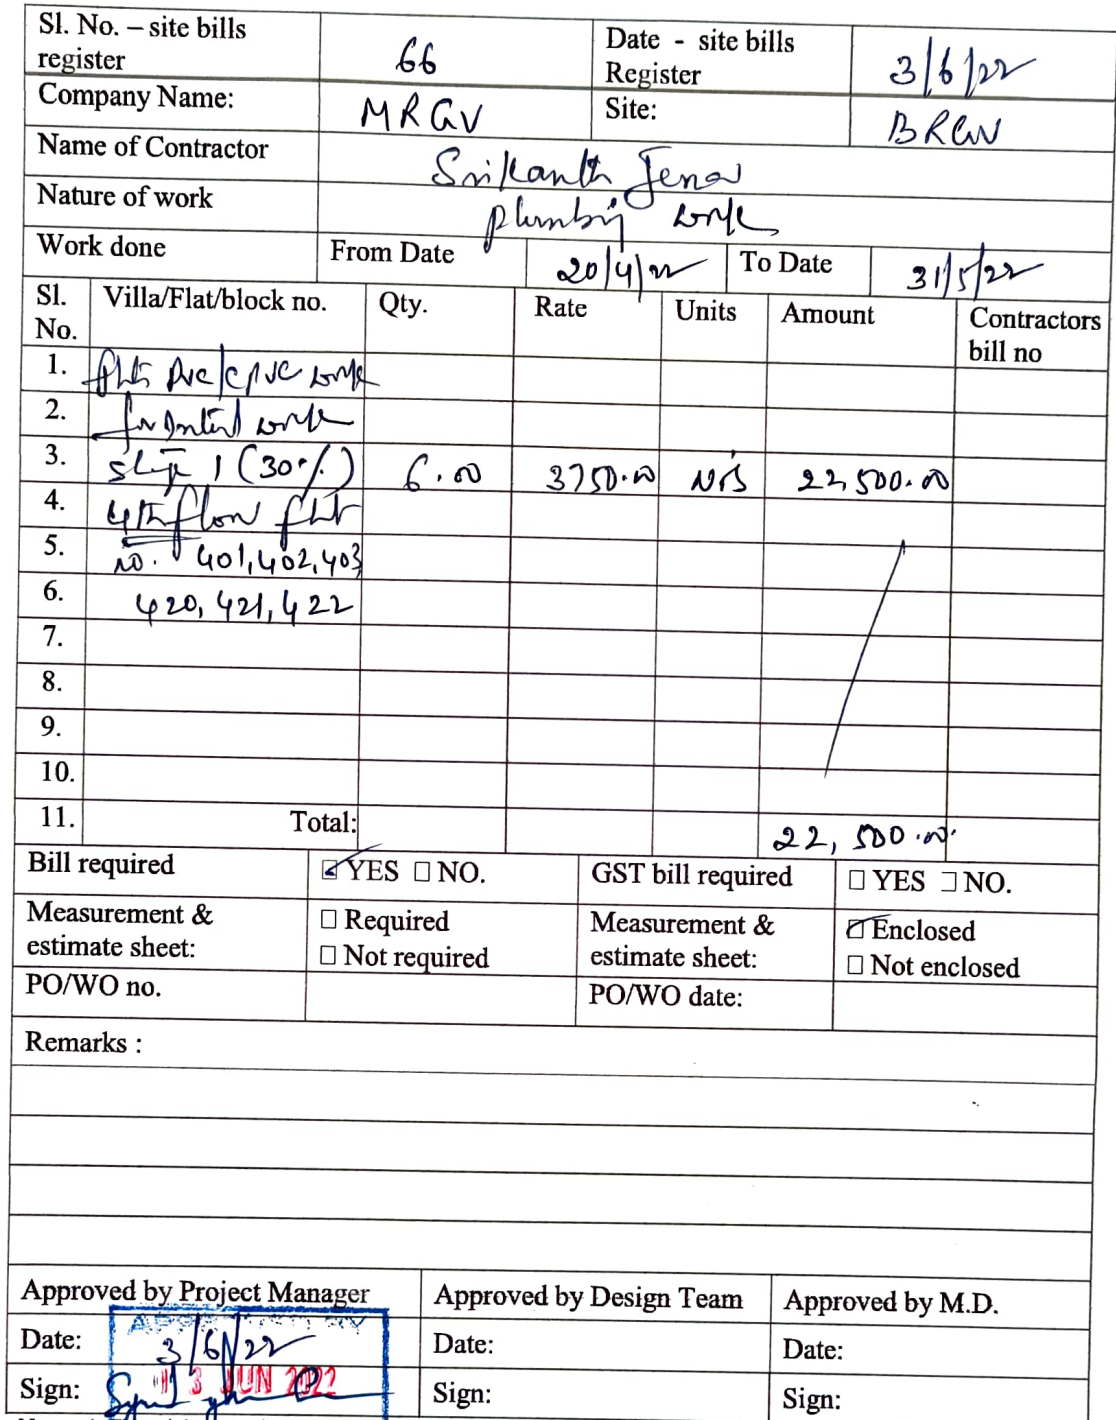 Sl. No. – site bills register 66 Date - site bills Register 3/6/22
Company Name: MRGV Site: BRGV
Name of Contractor Srikanth Jena
Nature of work plumbing work
Work done From Date 20/4/22 To Date 31/5/22
Sl. No. Villa/Flat/block no. Qty. Rate Units Amount Contractors bill no
1. flats pvc/cpvc work
2. for work
3. stage 1 (30%) 6.00 3750.00 NOS 22,500.00
4. 4th floor flat
5. no. 401,402,403
6. 420, 421, 422
7.
8.
9.
10.
11. Total: 22, 500.00
Bill required YES NO. GST bill required YES NO.
Measurement & estimate sheet: Required Not required Measurement & estimate sheet: Enclosed Not enclosed
PO/WO no. PO/WO date:
Remarks :
Approved by Project Manager Approved by Design Team Approved by M.D.
Date: 3/6/22 Date: Date:
Sign: 3 JUN 2022 Sign: Sign: